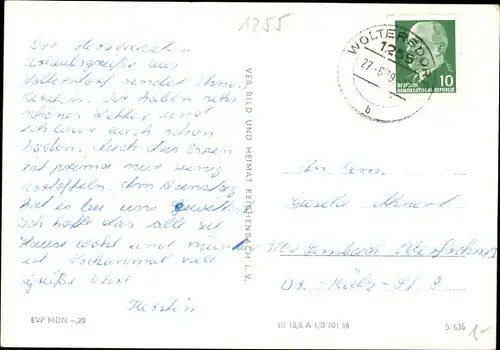 1255
Die herzlichsten
Urlaubsgrüße aus
Woltersdorf sendet Ihnen
Kerstin. Wir haben sehr
schönes Wetter und
ich war auch schon
baden. Auch das Essen
ist prima nur wenig
Kartoffeln. Am Dienstag
hat es bei uns gewittert.
Ich hoffe das alle zu
Hause wohl und munter
ist. Nochmal viele
Grüße Ihre
Kerstin
EVP MDN -,20
VEB BILD UND HEIMAT REICHENBACH I. V.
III 18/6 A 1/B 901 66
WOLTERSDORF
1255
27.6.69
b
10
DEUTSCHE
DEMOKRATISCHE REPUBLIK
Gisela
Dr.-Külz-St. 8
5/636
1-